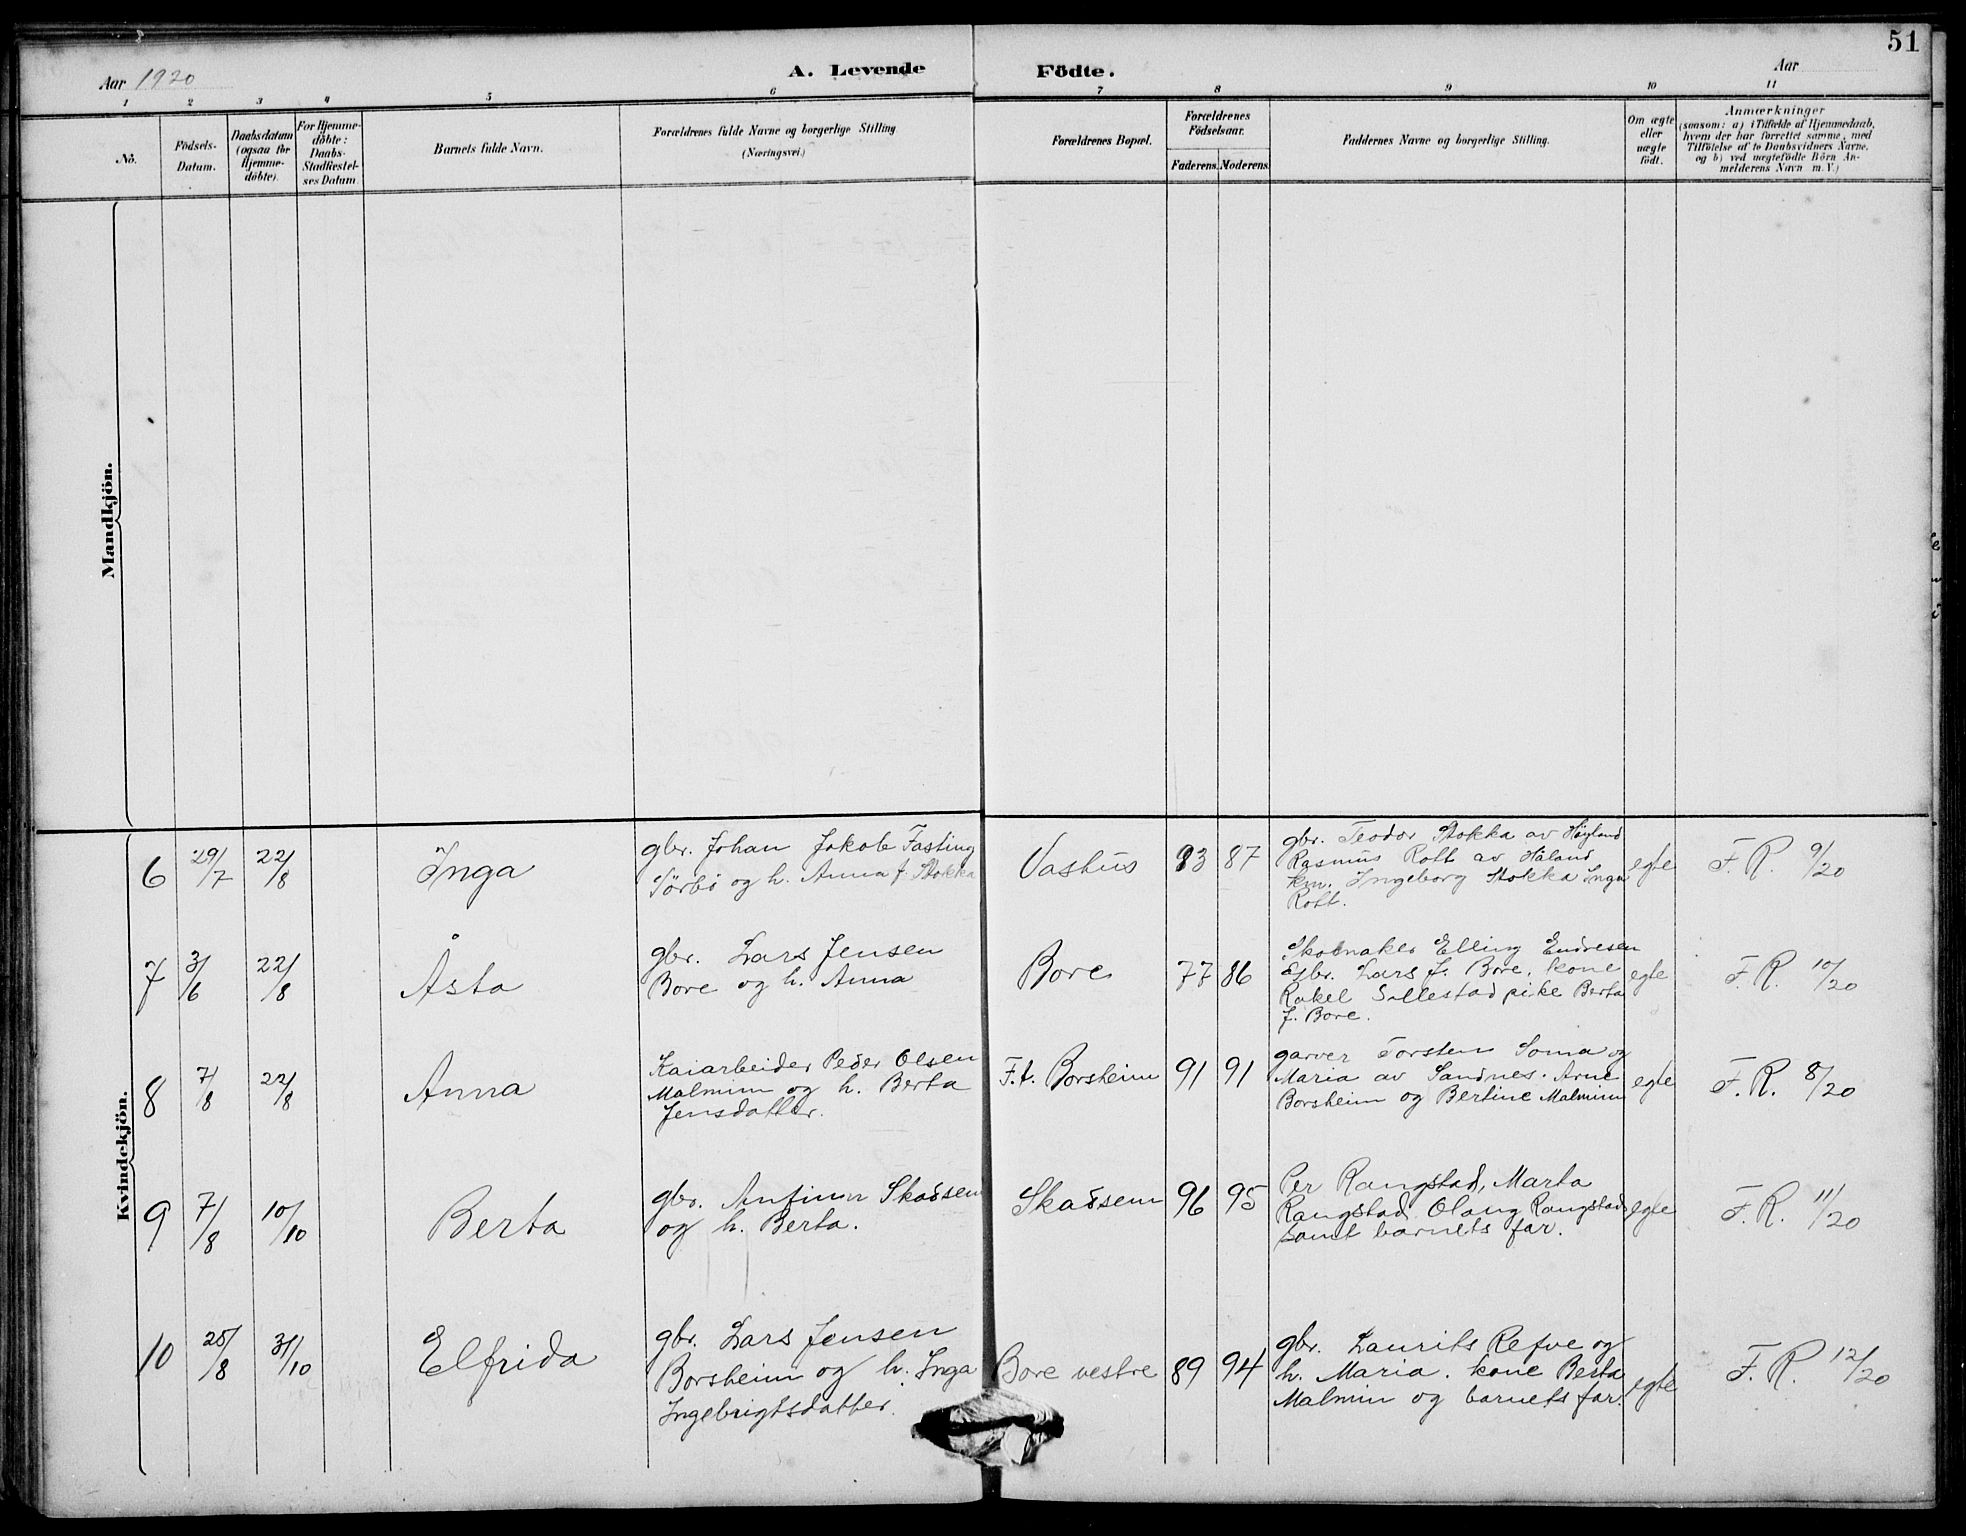 51
Aar 1920
A. Levende Födte.
Aar
1 2 3 4 5 6 7 8 9 10 11
No.
Födsels-
Datum.
Daabsdatum
(ogsaa for
Hjemme-
döbte).
For Hjemme-
döbte:
Daabs-
Stadfæstel-
ses Datum
Barnets fulde Navn.
Forældrenes fulde Navne og borgerlige Stilling
(Næringsvei.)
Forældrenes Bopæl.
Forældrenes
Födselsaar.
Faderens. Moderens.
Faddernes Navne og borgerlige Stilling.
Om ægte
eller
uægte
födt.
Anmærkninger
(saasom: a) i Tilfælde af Hjemmedaab,
hvem der har forrettet samme, med
Tilföielse af to Daabsvidners Navne,
og b) ved uægtefödte Börn An-
melderens Navn m. V.)
Mandkjön.
Kvindekjön.
6
29/7
22/8
Inga
gbr. Johan Jakob Fasting
Törbö og h. Anna f. Stokka
Vashus
93 87
gbr. Teodor Stokka av Høyland
Rasmus Rott av Håland
km. Ingeborg Stokka Inga
Rott.
egte
F. R. 9/20
7
3/6
22/8
Åsta
gbr. Lars Jensen
Bore og h. Anna
Bore
77 86
Skomaker Elling Endresen
Gbr. Lars J. Bore, kone
Rakel Sellestad pike Berta
J. Bore.
egte
F. R. 10/20
8
7/8
22/8
Anna
Kaiarbeider Peder Olsen
Malmim og h. Berta
Jensdatter.
F.t. Borsheim
91 91
garver Torsten Soma og
Maria av Sandnes. Arne
Borsheim og Bertine Malmim
egte
F. R. 8/20
9
7/8
10/10
Berta
gbr. Antinn Skadsem
og h. Berta.
Skadsem
96 95
Per Rangstad, Marta
Rangstad Olang Rangstad
samt barnets far.
egte
F. R. 11/20
10
25/8
31/10
Elfrida
gbr. Lars Jensen
Borsheim og h. Inga
Ingebrigtsdatter.
Bore vestre
89 94
gbr. Laurits Refve og
h. Maria. kone Berta
Malmin og barnets far.
egte
F. R. 12/20